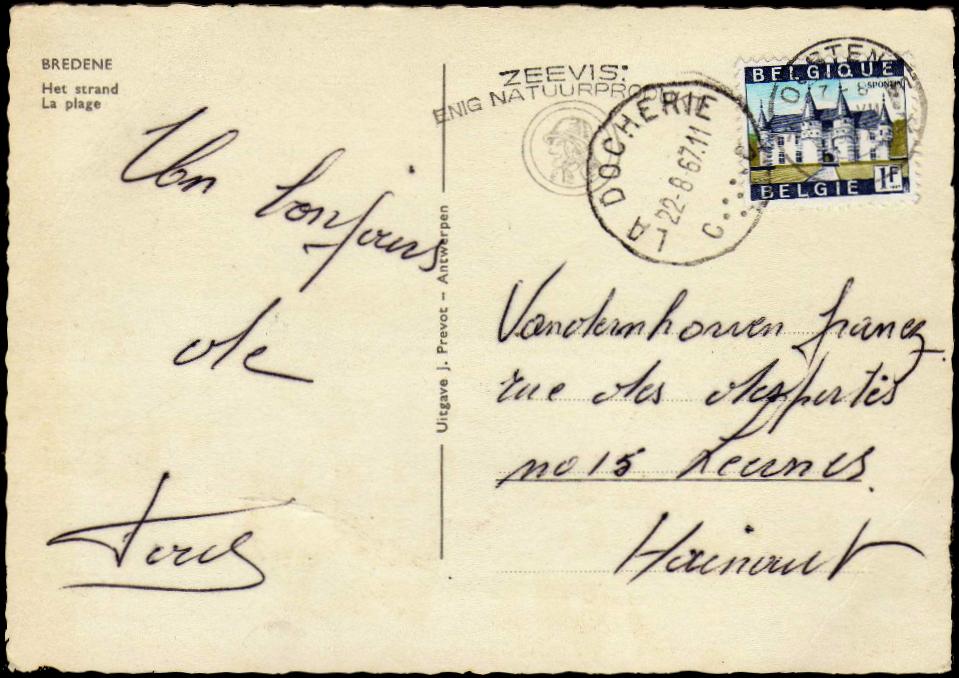 BREDENE
Het strand
La plage
Un bonjour
de
Uitgave J. Prevot – Antwerpen
ZEEVIS:
ENIG NATUURPRODU
LA DOCHERIE
22-8-67.11
C
BELGIQUE
SPONTIN
BELGIE 1F
OOSTEN
Vandernhouven franez
rue des
no 15 Leernes
Hainaut